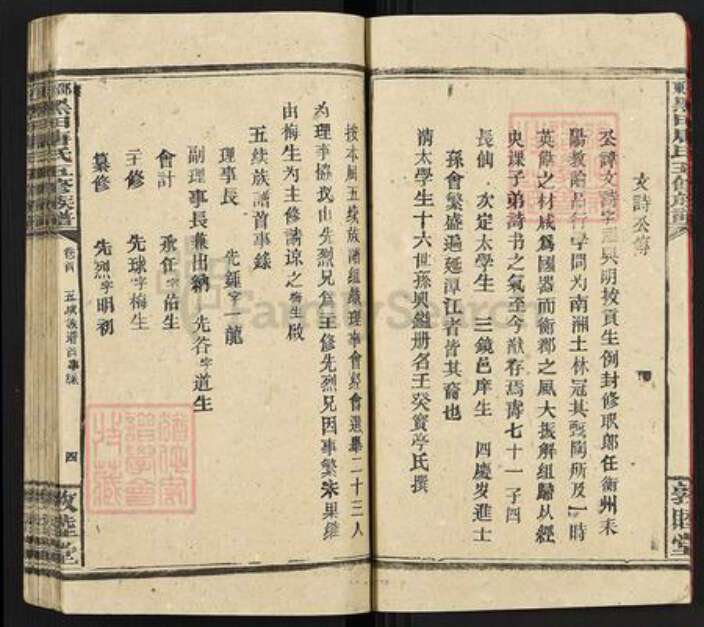 文詩公傳
公諱文詩字 興明拔貢生例封修職郎任衡州耒
陽教諭品行學問为南湘士林冠其甄陶所及一時
英偉之材咸爲國器而衡郡之風大振解组歸以經
史課子弟詩书之氣至今猷存焉壽七十一子四
長仙 次定太學生 三鏡邑庠生 四慶岁進士
孫會繁盛遍延潭江者皆其裔也
清太學生十六世孫興鎰册名王癸寶亭氏撰
按本届五续族譜组織理事會经會選舉二十三人
为理事協议由先烈兄爲主修先烈兄因事繁未果继
由梅生为主修請諒之梅生啟
五续族譜首事錄
理事長 先鍾字一龍
副理事長兼出納 先谷字道生
會計 承任字佑生
主修 先球字梅生
纂修 先烈字明初
黑田唐氏五修族譜
卷首
五续族譜首事錄
四
敦睦堂